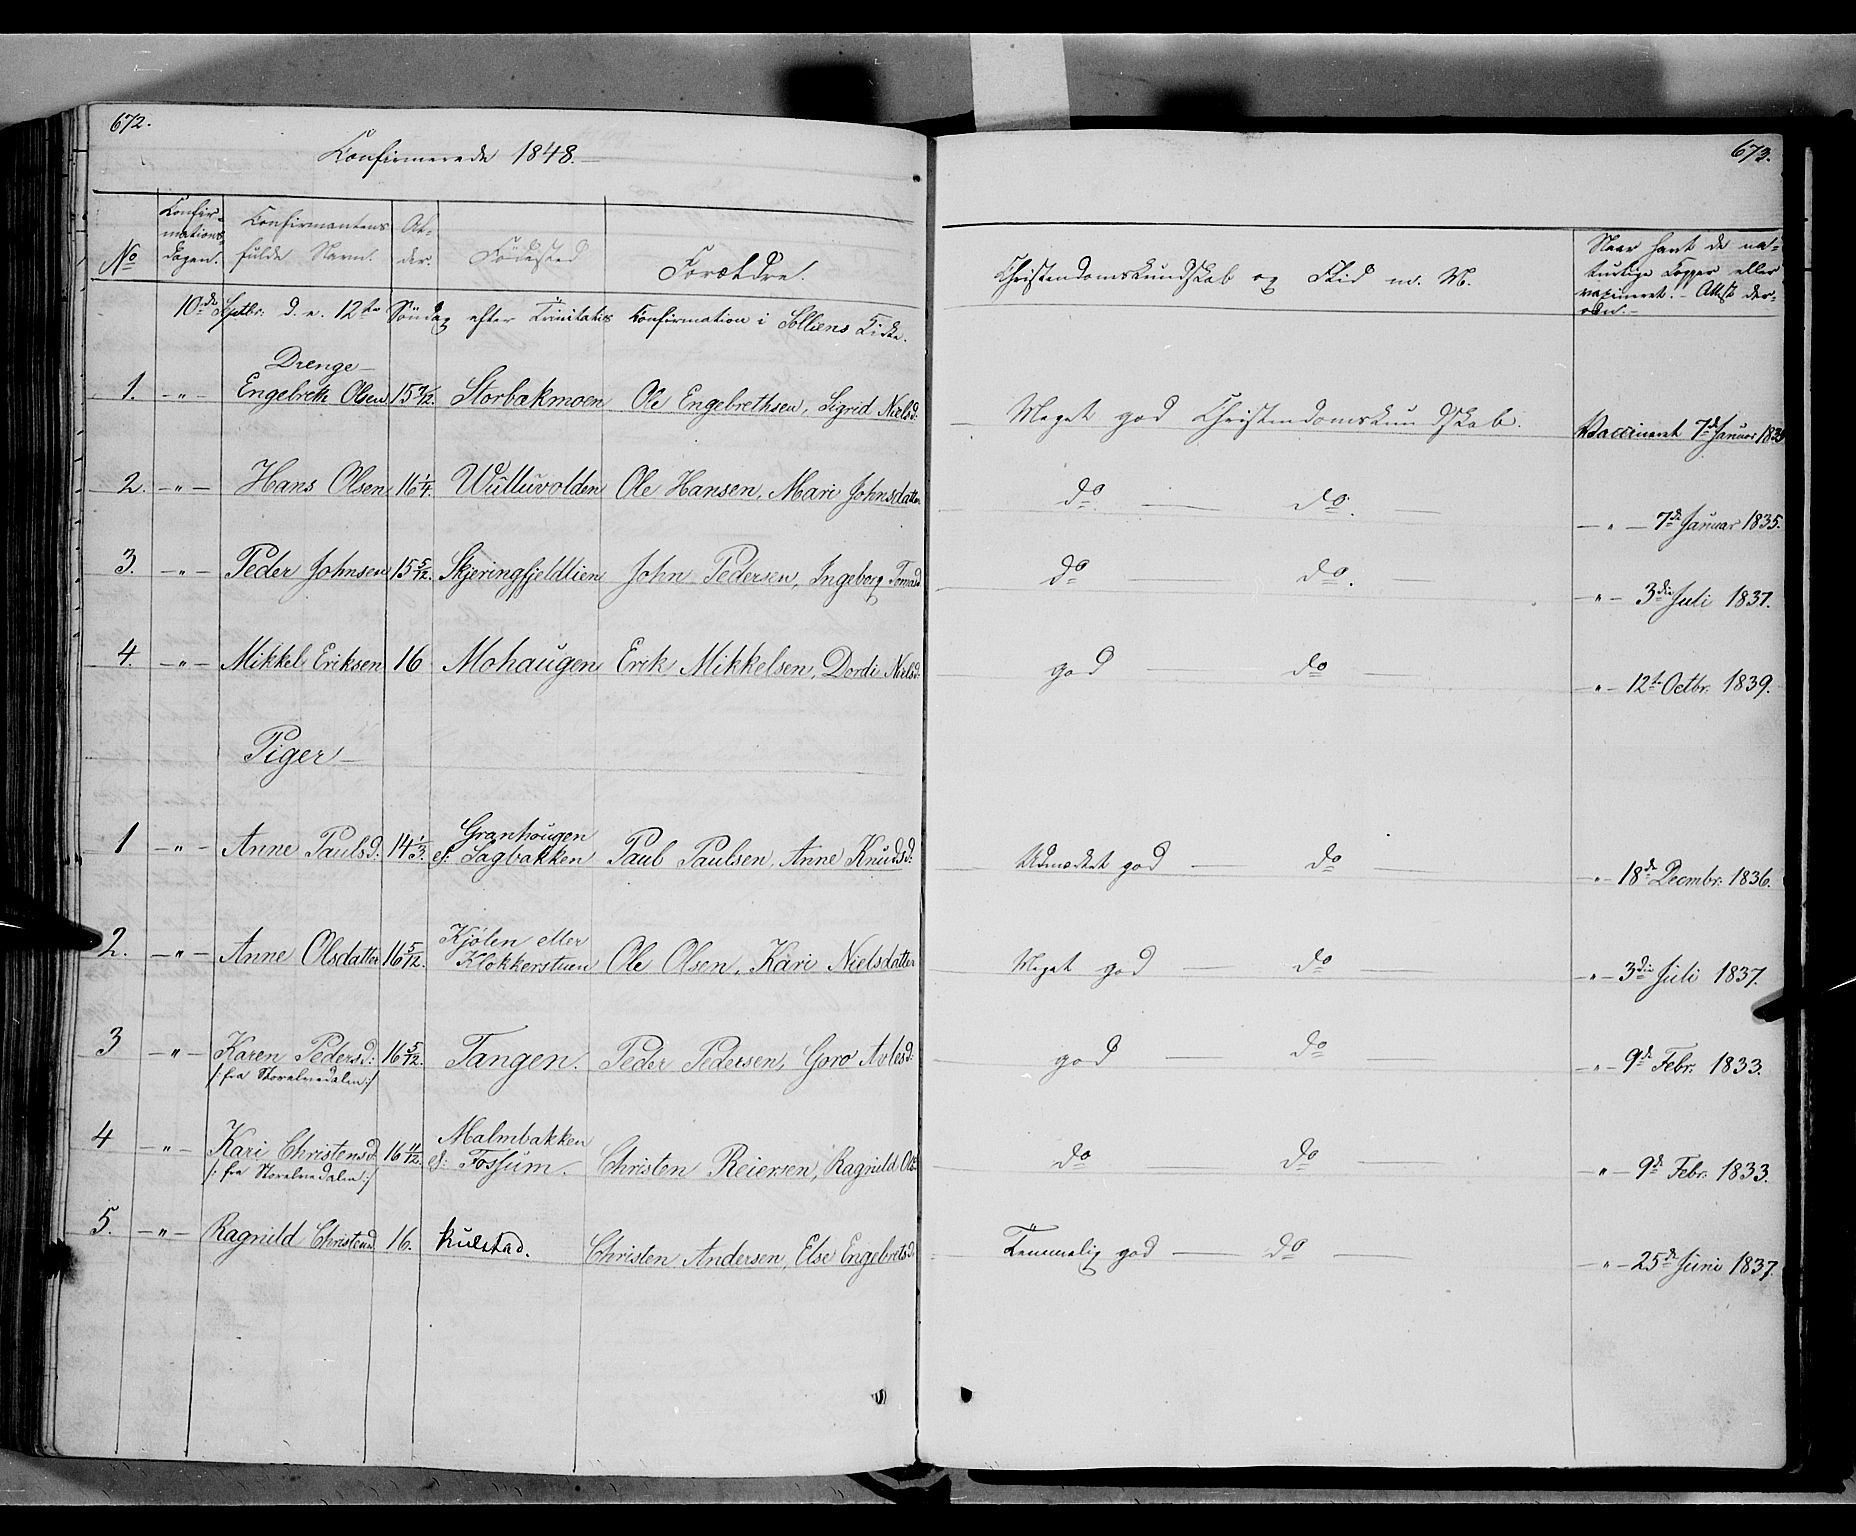 672.
Confirmerede 1848.
673.
No
Confir-
mations-
dagen.
Confirmantens
fulde Navn.
Al-
der.
Födested
Forældre.
Christendomskundskab og Flid m. M.
Naar havt de na-
turlige Kopper eller
vaxineret. - Attest der-
om.
10de Septbr. d. e. 12te Söndag efter Trinitatis Confirmation i Solliens Kirke.
Drenge
1. -"- Engebreth Olsen Storbakmoen Ole Engebrethsen, Sigrid Nielsd: Meget god Christendomskundskab. Vaccineret 7de Januar
2. -"- Hans Olsen 16 1/4. Wulluvolden Ole Hansen, Mari Johnsdatter do. do. -"- 7de Januar 1835.
3. -"- Peder Johnsen 15 5/12. Skjeringfjeldlien John Pedersen, Ingeborg Tomasd do do. -"- 3die Juli 1837.
4. -"- Mikkel Eriksen 16 Mohaugen Erik Mikkelsen, Dordi Nielsd: god do -"- 12te Octbr. 1839.
Piger
1 -"- Anne Paulsd: 14 1/3. Granhougen
el: Sagbakken Paul Paulsen, Anne Knudsd: Udmærket god do -"- 18de Decmbr. 1836.
2. -"- Anne Olsdatter 16 5/12. Kjölen eller
Klokkerstuen Ole Olsen, Kari Nielsdatter Meget god do -"- 3die Juli 1837.
3 -"- Karen Pedersd: 16 5/12. Tangen. Peder Pedersen, Goro Avlesd: god do -"- 9de Febr. 1833.
/: fra Storelvedalen :/
4 -"- Kari Christensd 16 11/12. Malmbakken
el: Fossum. Christen Reiersen, Ragnild Ols do do -"- 9de Febr. 1833.
/: fra Storelvedalen :/
5. -"- Ragnild Christend 16. Kulstad. Christen Andersen, Else Engebretsd: Temmelig god do -"- 25de Juni 1837.